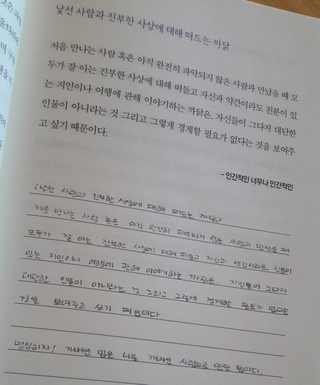 낯선 사람과 진부한 사상에 대해 떠드는 까닭
처음 만나는 사람 혹은 아직 완전히 파악되지 않은 사람과 만났을 때 모
두가 잘 아는 진부한 사상에 대해 떠들고 자신과 약간이라도 친분이 있
는 지인이나 여행에 관해 이야기하는 까닭은, 자신들이 그다지 대단한
인물이 아니라는 것 그리고 그렇게 경계할 필요가 없다는 것을 보여주
고 싶기 때문이다.
- 인간적인 너무나 인간적인
(낯선 사람과 진부한 사상에 대해 떠드는 까닭)
처음 만나는 사람 혹은 아직 완전히 파악되지 않은 사람과 만났을 때
모두가 잘 아는 진부한 사상에 대해 떠들고 자신과 약간이라도 친분이
있는 지인이나 여행에 관해 이야기하는 까닭은, 자신들이 그다지
대단한 인물이 아니라는 것 그리고 그렇게 경계할 필요가 없다는
것을 보여주고 싶기 때문이다.
명심하자! 가벼운 입은 나를 가벼운 사람으로 만들 뿐이다.